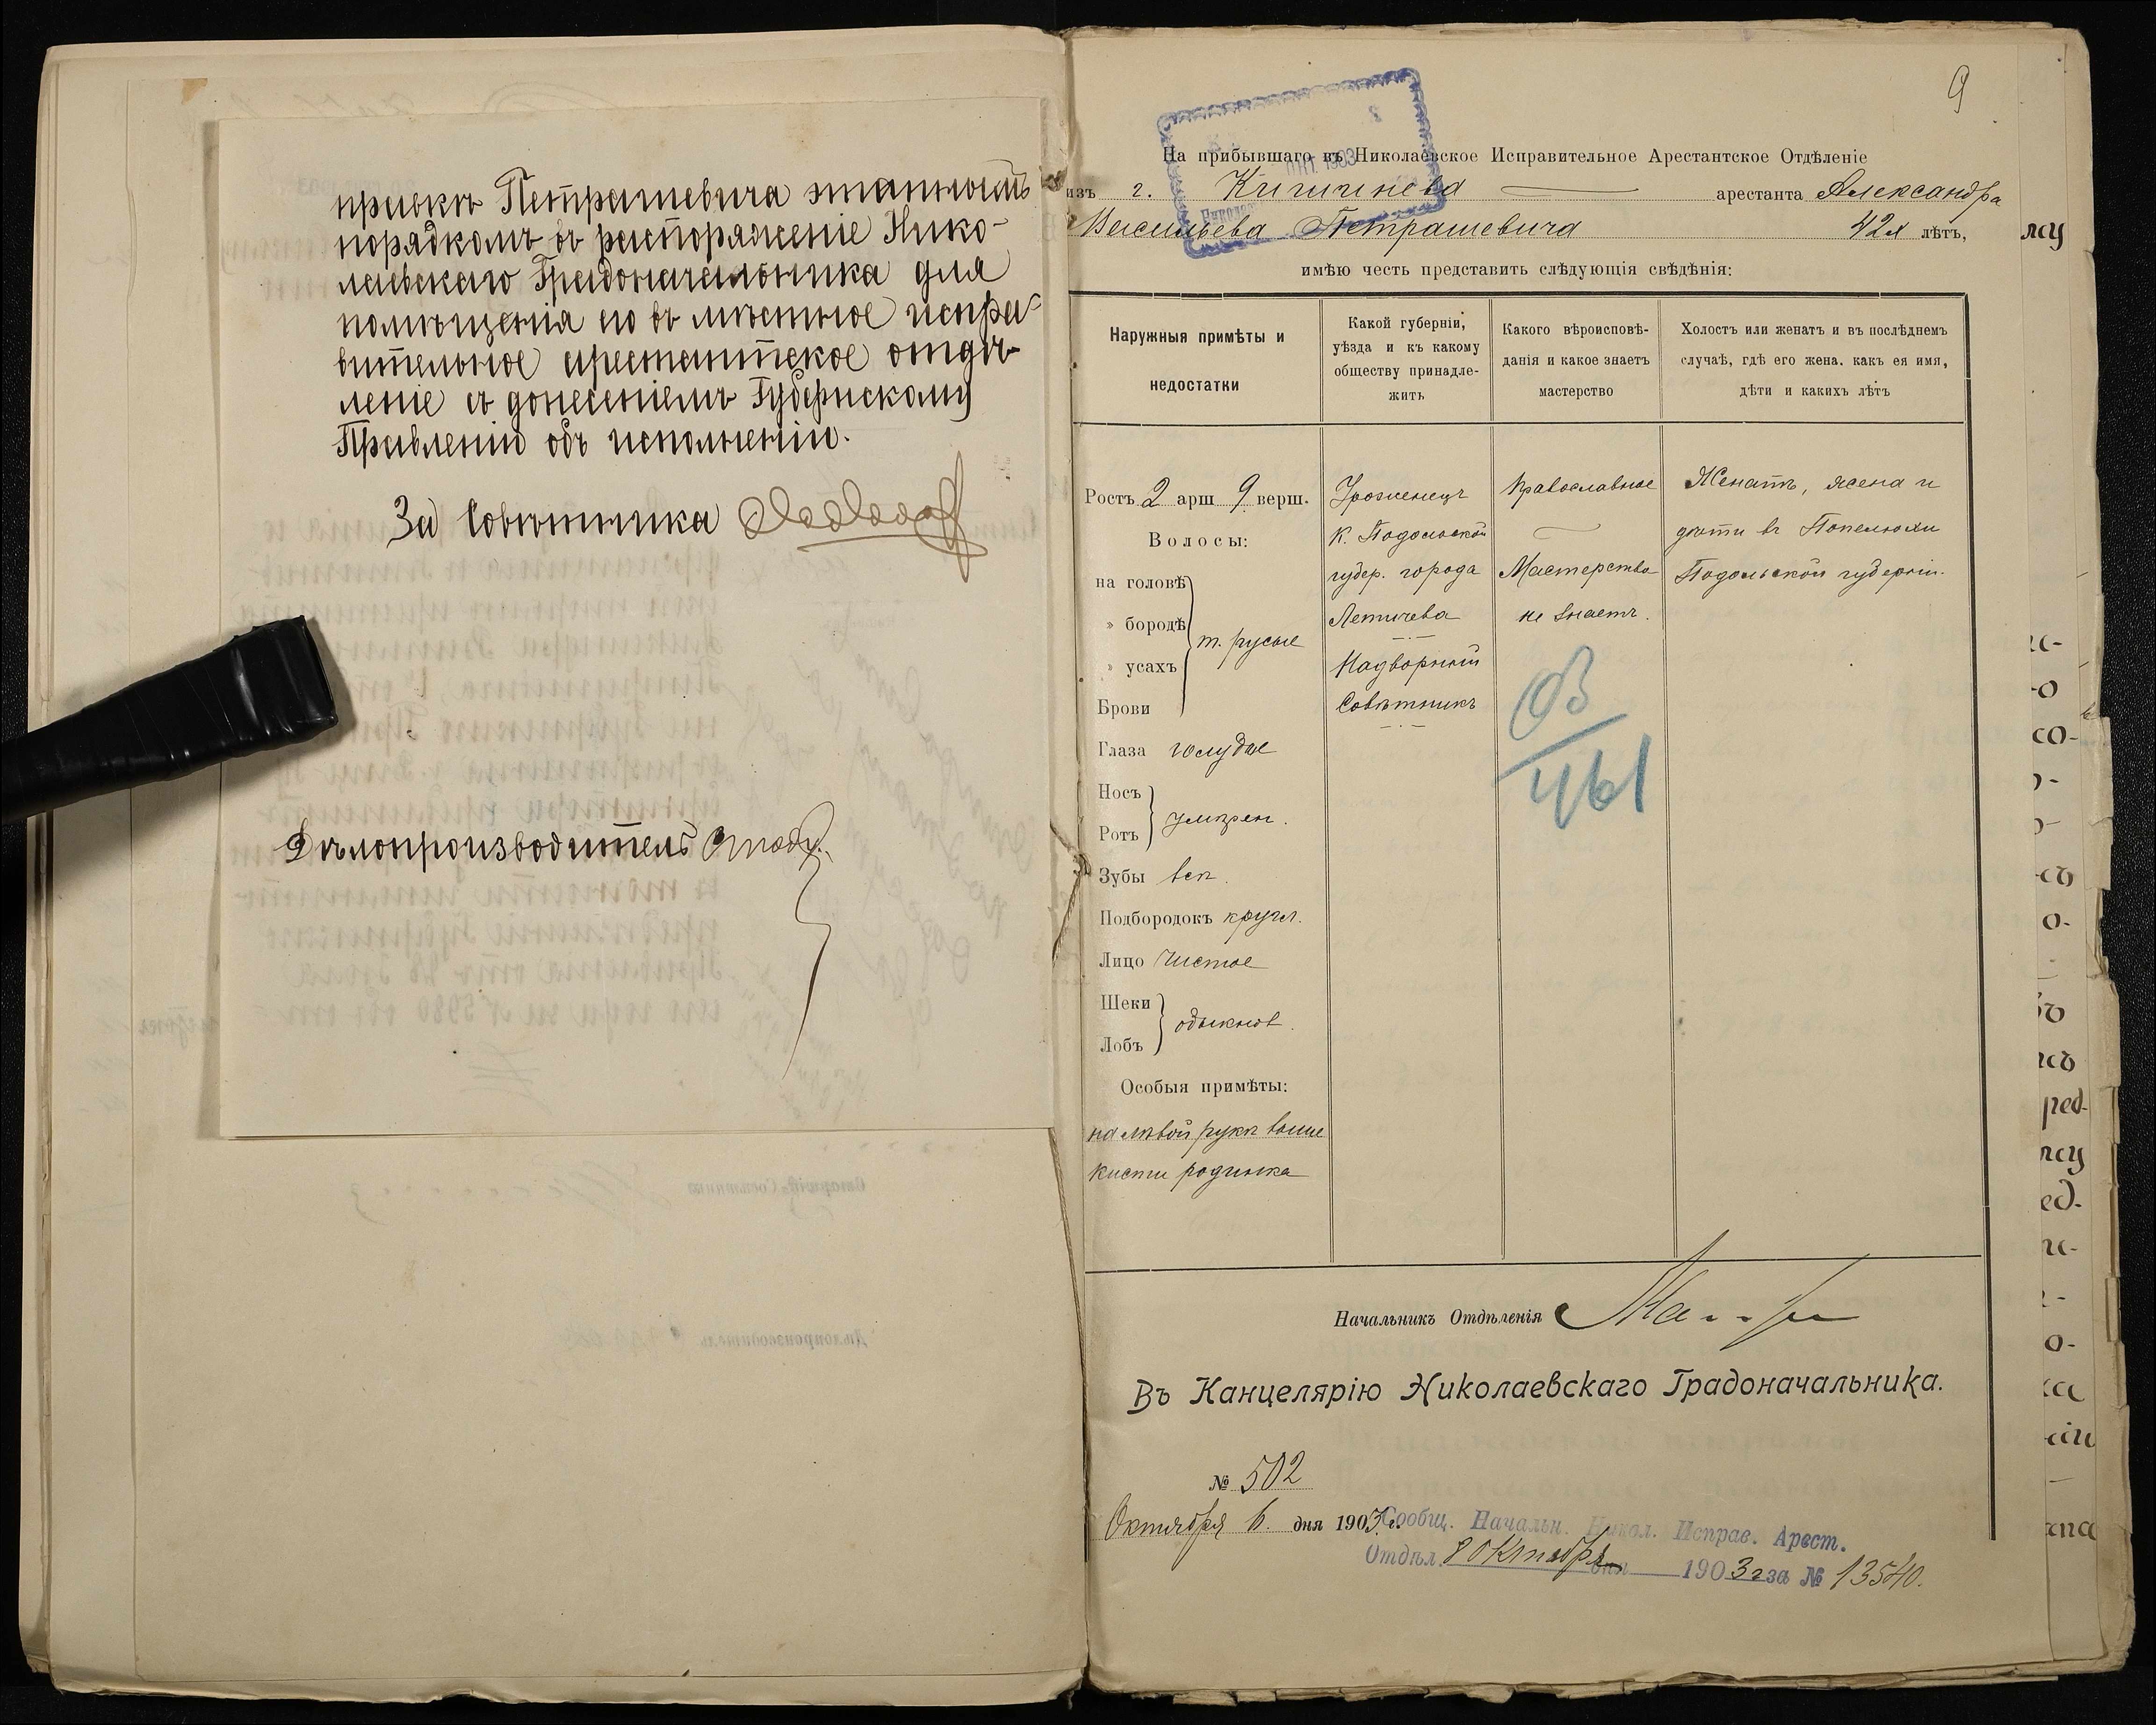 правкѣ Петрашевича этапнымъ
порядкомъ въ распоряженіе Нико-
лаевскаго Градоначальника для
помѣщенія его въ мѣстное испра-
вительное арестантское отдѣ-
леніе съ донесеніемъ Губернскому
Правленію объ исполненіи.
За Совѣтника
Дѣлопроизводитель
9
На прибывшаго въ Николаевское Исправительное Арестантское Отдѣленіе
изъ г. Кишинева арестанта Александра
Васильева Петрашевича 42х лѣтъ,
имѣю честь представить слѣдующія свѣдѣнія:
Наружныя примѣты и
недостатки
Какой губерніи,
уѣзда и къ какому
обществу принадле-
житъ
Какого вѣроисповѣ-
данія и какое знаетъ
мастерство
Холостъ или женатъ и въ послѣднемъ
случаѣ, гдѣ его жена. какъ ея имя,
дѣти и какихъ лѣтъ
Ростъ 2 арш 9 верш.
Волосы:
на головѣ
» бородѣ
» усахъ
т. русые
Брови
Глаза голубые
Носъ
Ротъ
умѣрен.
Зубы всѣ.
Подбородокъ кругл.
Лицо чистое
Щеки
Лобъ
обыкнов.
Особыя примѣты:
на лѣвой рукѣ выше
кисти родинка
Уроженецъ
к. Подольской
губер. города
Летичева
Надворный
Совѣтникъ
Православное
Мастерства
не знаетъ.
Женатъ, жена и
дѣти въ Попелюхи
Подольской губерніи.
Начальникъ Отдѣленія
Въ Канцелярію Николаевскаго Градоначальника.
№ 502
Октября 6. дня 1903 г.
Сообщ. Начальн. Никол. Исправ. Арест.
Отдѣл. 8 Октября дня 1903 г за № 13540.